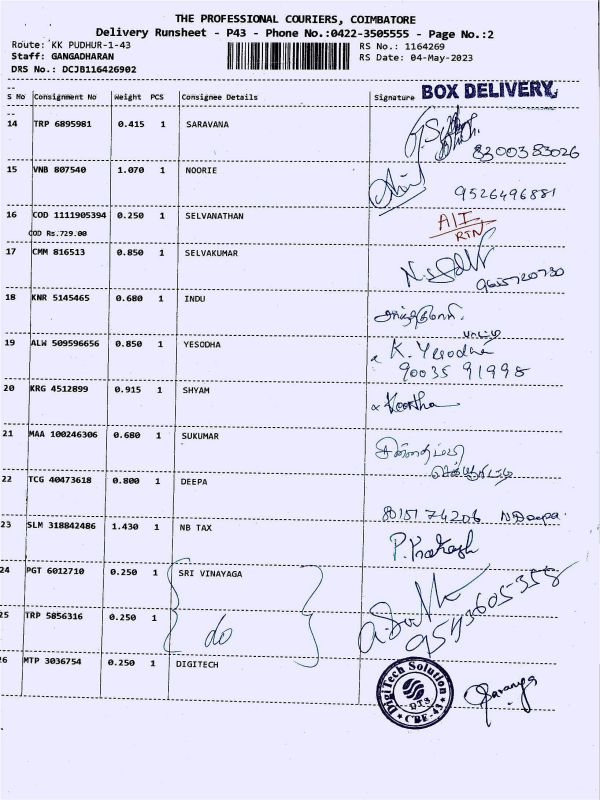 THE PROFESSIONAL COURIERS, COIMBATORE
Delivery Runsheet - P43 - Phone No.:0422-3505555 - Page No.:2
Route: KK PUDHUR-1-43 RS No.: 1164269
Staff: GANGADHARAN RS Date: 04-May-2023
DRS No.: DCJB116426902
BOX DELIVERY
S No Consignment No Weight PCS Consignee Details Signature
14 TRP 6895981 0.415 1 SARAVANA
8300383026
15 VNB 807540 1.070 1 NOORIE
9526496881
16 COD 1111905394 0.250 1 SELVANATHAN A/I
COD Rs.729.00 RTN
17 CMM 816513 0.850 1 SELVAKUMAR
9655720730
18 KNR 5145465 0.680 1 INDU
19 ALW 509596656 0.850 1 YESODHA K. Yesodha
90035 91998
20 KRG 4512899 0.915 1 SHYAM Keertha
21 MAA 100246306 0.680 1 SUKUMAR
22 TCG 40473618 0.800 1 DEEPA
8015174206 N Deepa
23 SLM 318842486 1.430 1 NB TAX P. Prakash
24 PGT 6012710 0.250 1 SRI VINAYAGA
9543605358
25 TRP 5856316 0.250 1 do
26 MTP 3036754 0.250 1 DIGITECH
DigiTech Solution
DTS
CBE-43
Saranya